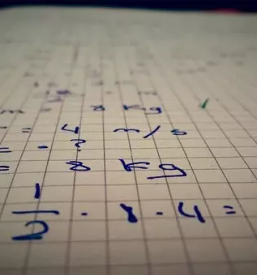 m = 8 Kg
= 4 m/s
= - ?
= 8 kg
1/2 · 8 · 4 =